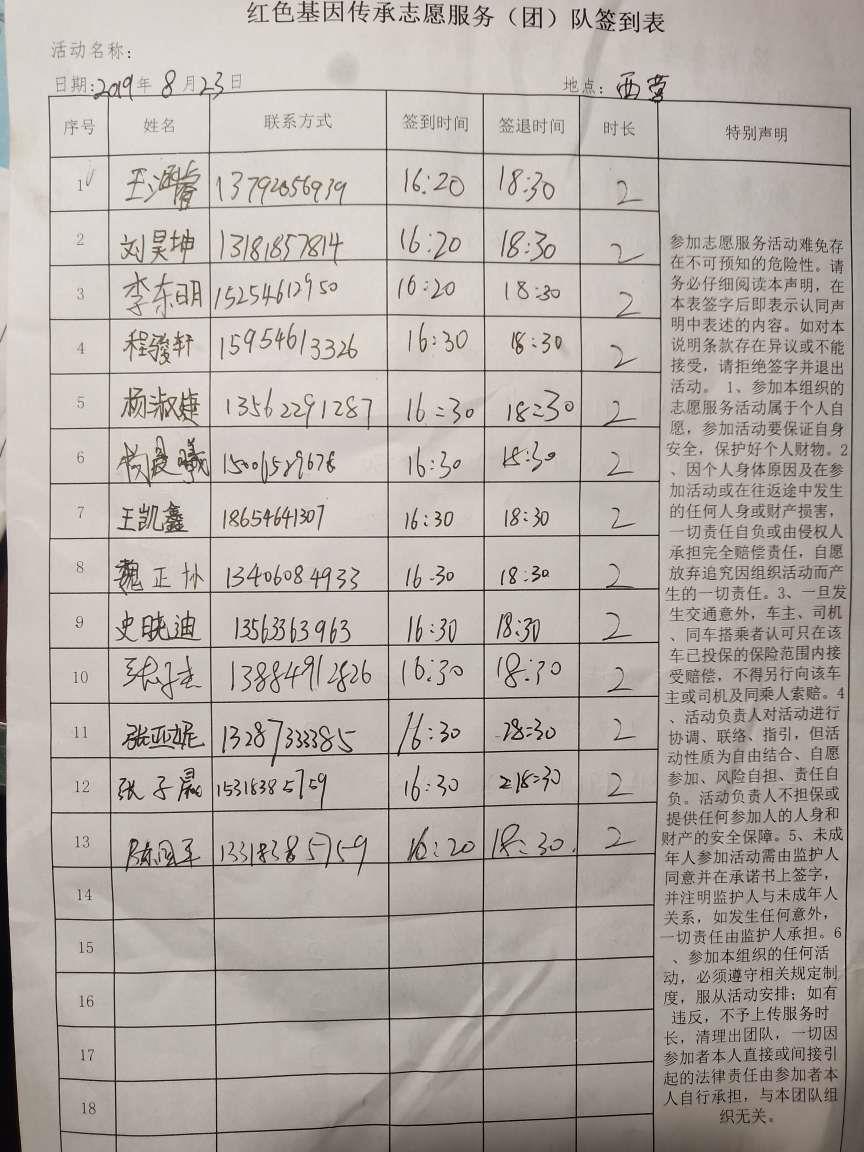 红色基因传承志愿服务（团）队签到表
活动名称：
日期:2019年 8月23日 地点：西营
序号 姓名 联系方式 签到时间 签退时间 时长 特别声明
1 王涵睿 13792056939 16:20 18:30 2
2 刘昊坤 13181857814 16:20 18:30 2
3 李东明 15254612950 16:20 18:30 2
4 程骏轩 15954613326 16:30 18:30 2
5 杨淑婕 13562291287 16:30 18:30 2
6 杨晨曦 16:30 18:30 2
7 王凯鑫 18654641307 16:30 18:30 2
8 魏正 13406084933 16:30 18:30 2
9 史晓迪 13563363963 16:30 18:30 2
10 13884912826 16:30 18:30 2
11 张亚妮 13287333385 16:30 18:30 2
12 张子晨 15318385759 16:30 18:30 2
13 13318385759 16:20 18:30. 2
14
15
16
17
18
参加志愿服务活动难免存
在不可预知的危险性。请
务必仔细阅读本声明，在
本表签字后即表示认同声
明中表述的内容。如对本
说明条款存在异议或不能
接受，请拒绝签字并退出
活动。 1、参加本组织的
志愿服务活动属于个人自
愿，参加活动要保证自身
安全，保护好个人财物。2
、因个人身体原因及在参
加活动或在往返途中发生
的任何人身或财产损害，
一切责任自负或由侵权人
承担完全赔偿责任，自愿
放弃追究因组织活动而产
生的一切责任。3、一旦发
生交通意外，车主、司机
、同车搭乘者认可只在该
车已投保的保险范围内接
受赔偿，不得另行向该车
主或司机及同乘人索赔。4
、活动负责人对活动进行
协调、联络、指引，但活
动性质为自由结合、自愿
参加、风险自担、责任自
负。活动负责人不担保或
提供任何参加人的人身和
财产的安全保障。5、未成
年人参加活动需由监护人
同意并在承诺书上签字，
并注明监护人与未成年人
关系，如发生任何意外，
一切责任由监护人承担。6
、参加本组织的任何活
动，必须遵守相关规定制
度，服从活动安排；如有
违反，不予上传服务时
长，清理出团队，一切因
参加者本人直接或间接引
起的法律责任由参加者本
人自行承担，与本团队组
织无关。